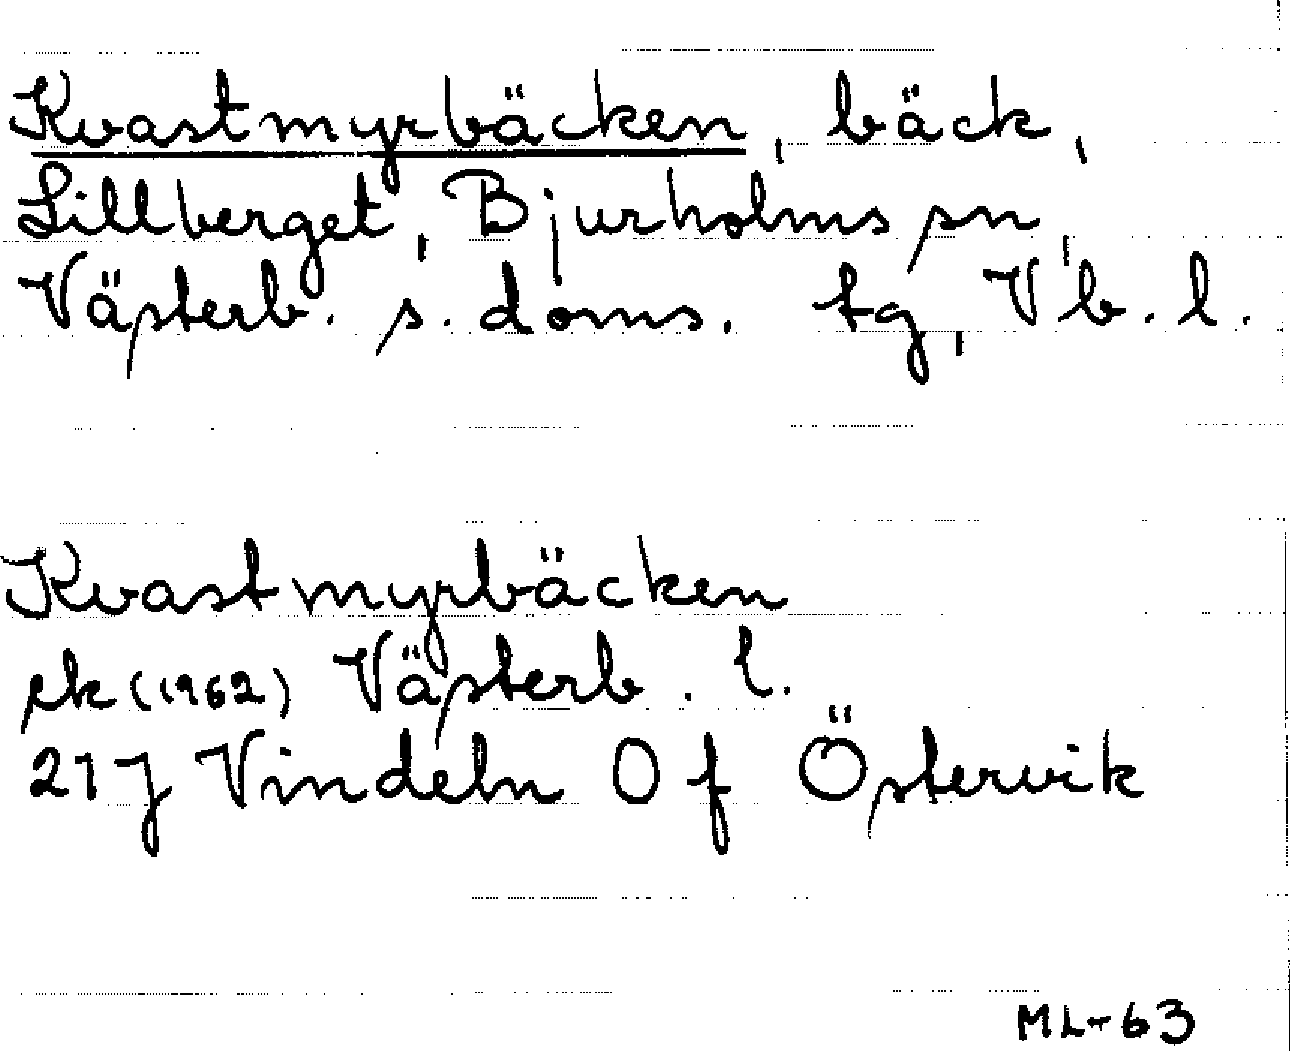 Kvastmyrbäcken, bäck,
Lillberget, Bjurholms sn,
Västerb. s. doms. tg, Vb. l.
Kvastmyrbäcken
ek (1962) Västerb. l.
21 J Vindeln 0 f Östervik
ML-63